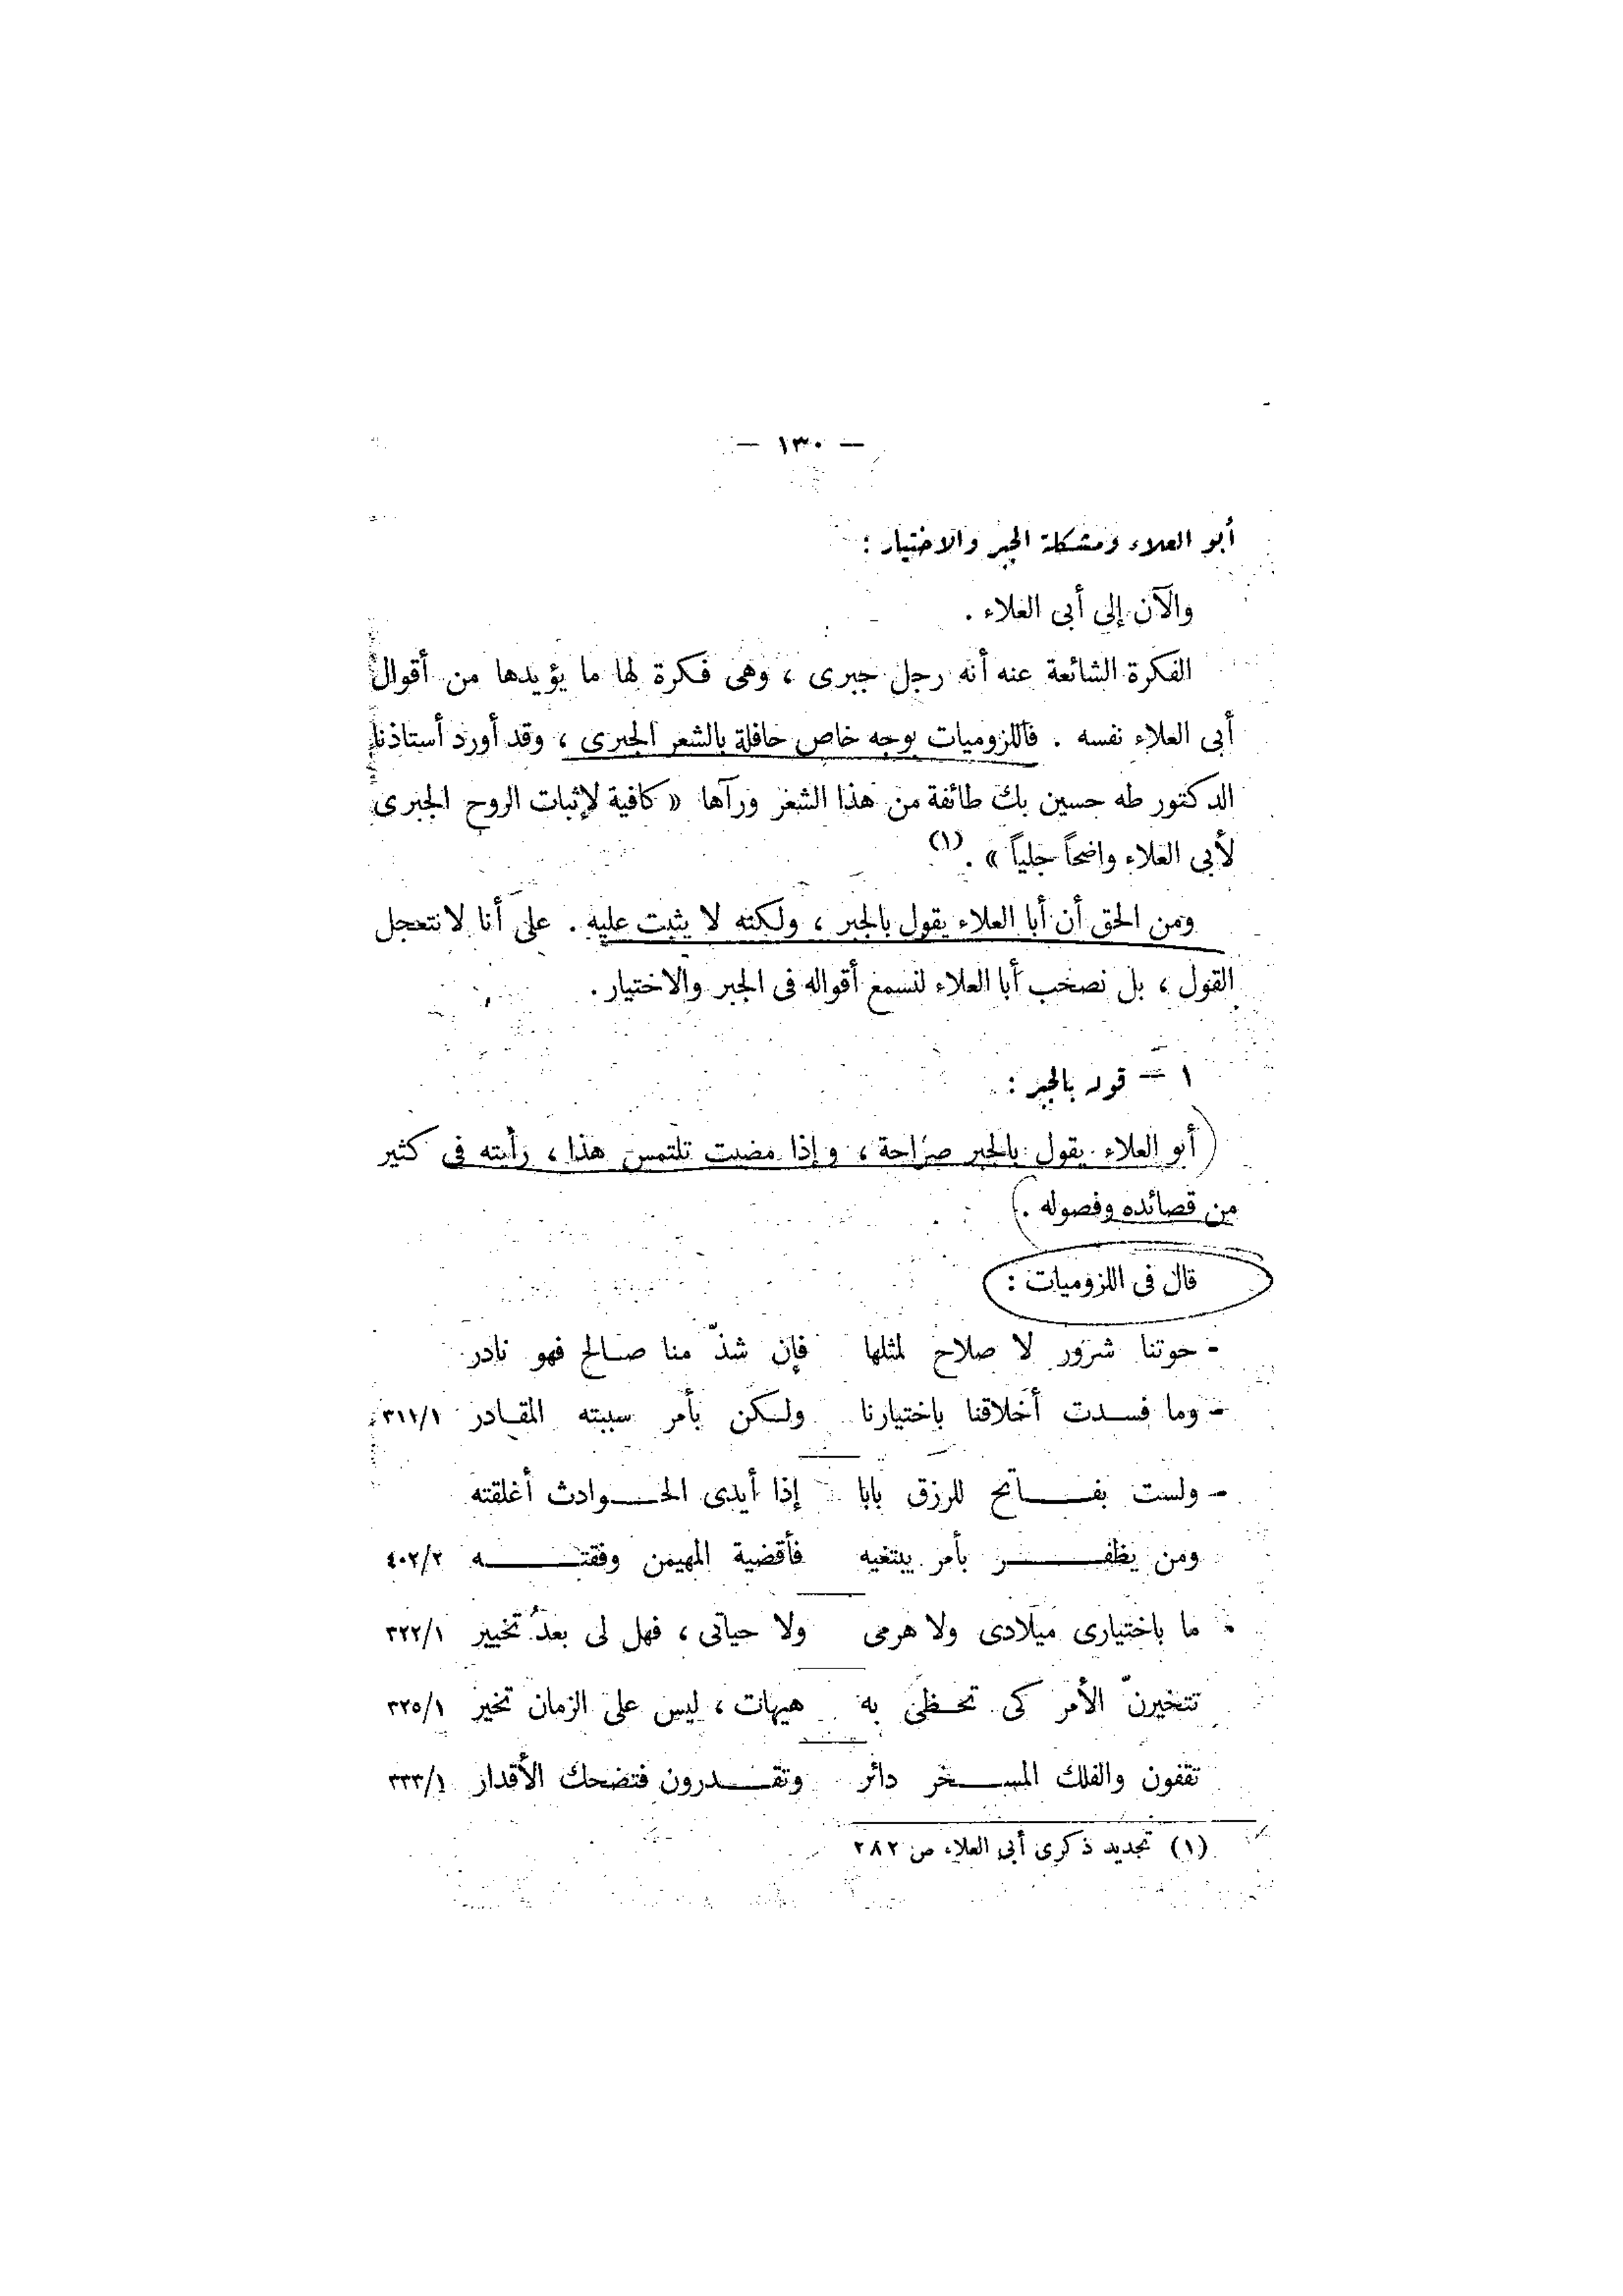 — ١٣٠ —
أبو العلاء ومشكلة الجبر والاختيار :
والآن إلى أبى العلاء .
الفكرة الشائعة عنه أنه رجل جبرى ، وهى فكرة لها ما يؤيدها من أقوال
أبى العلاء نفسه . فاللزوميات بوجه خاص حافلة بالشعر الجبرى ، وقد أورد أستاذنا
الدكتور طه حسين بك طائفة من هذا الشعر ورآها « كافية لإثبات الروح الجبرى
لأبى العلاء واضحاً جلياً » . (١)
ومن الحق أن أبا العلاء يقول بالجبر ، ولكنه لا يثبت عليه . على أنا لا نتعجل
القول ، بل نصحب أبا العلاء لنسمع أقواله فى الجبر والاختيار .
١ — قوله بالجبر :
أبو العلاء يقول بالجبر صراحة ، وإذا مضيت تلتمس هذا ، رأيته فى كثير
من قصائده وفصوله .
قال فى اللزوميات :
- حوتنا شرور لا صلاح لمثلها فإن شذّ منا صالح فهو نادر
- وما فسدت أخلاقنا باختيارنا ولكن بأمر سببته المقادر ٣١١/١
- ولست بفاتح للرزق بابا إذا أيدى الحوادث أغلقته
ومن يظفر بأمر يبتغيه فأقضية المهيمن وفقته ٤٠٢/٢
ما باختيارى ميلادى ولا هرمى ولا حياتى ، فهل لى بعدُ تخيير ٣٢٢/١
تتخيرنّ الأمر كى تحظى به هيهات ، ليس على الزمان تخير ٣٢٥/١
تقفون والفلك المسخر دائر وتقدرون فتضحك الأقدار ٣٣٣/١
(١) تجديد ذكرى أبى العلاء ص ٢٨٢